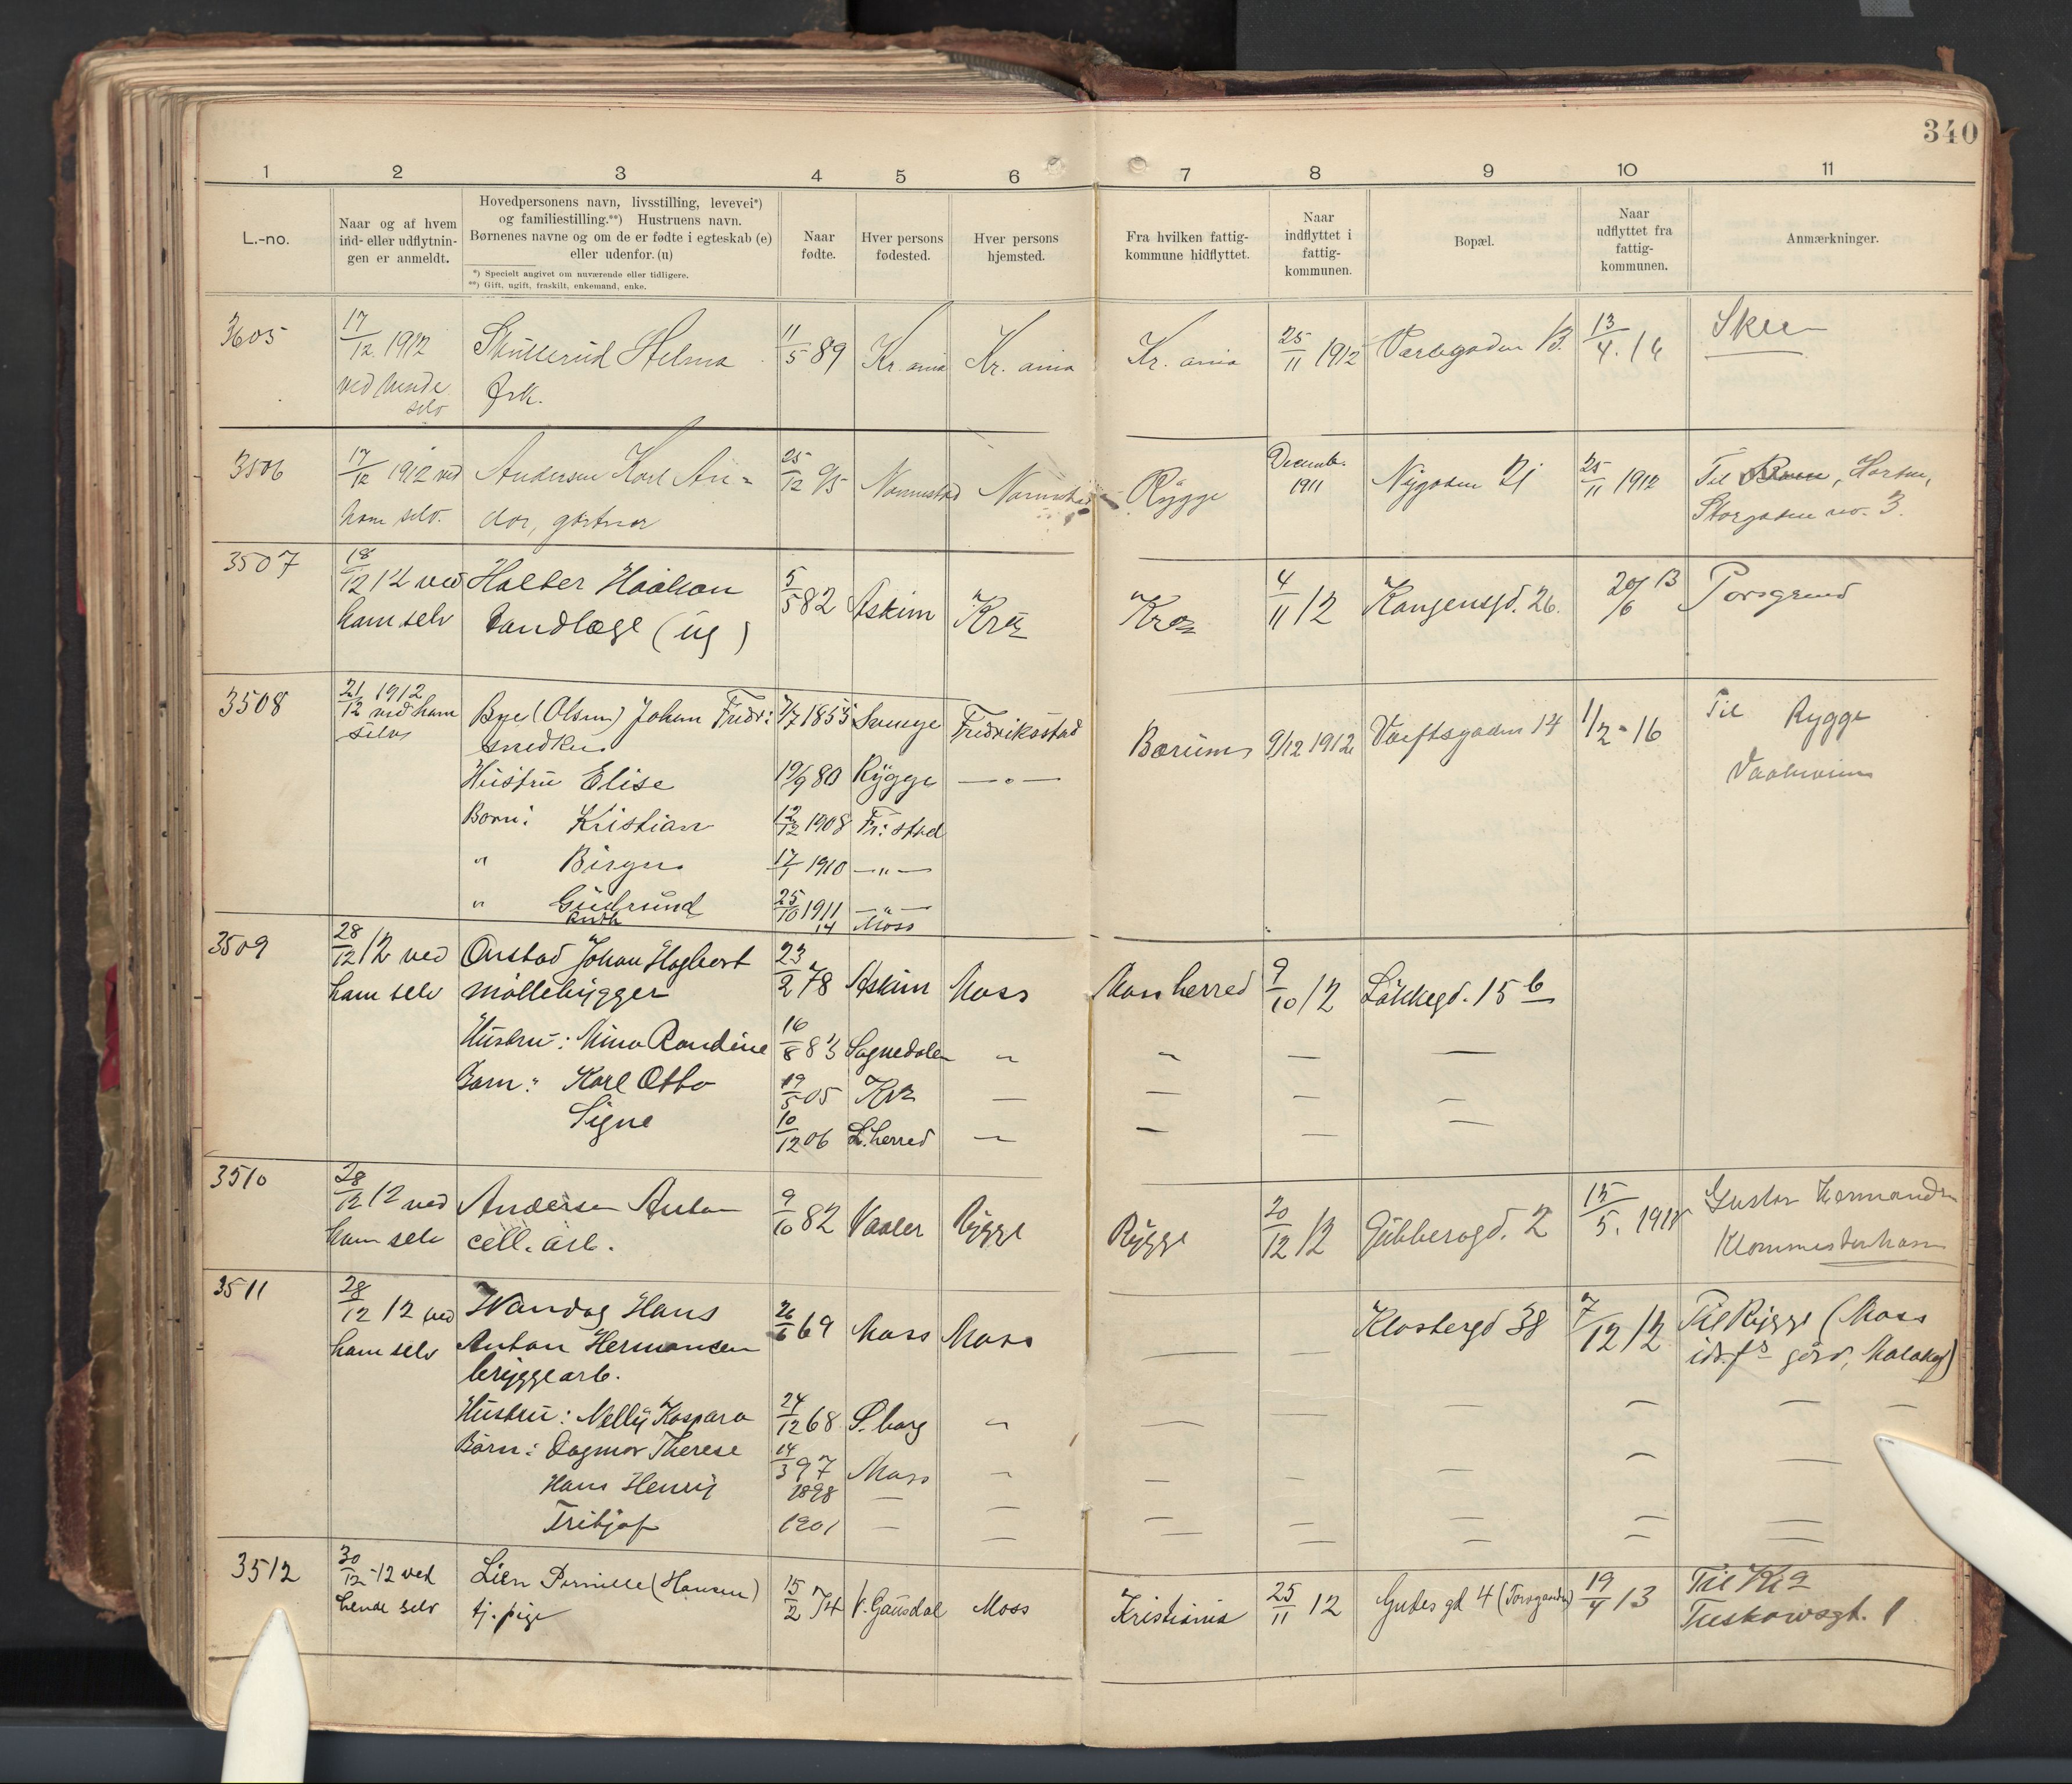 340
1 2 3 4 5 6 7 8 9 10 11
L.-no.
Naar og af hvem
ind- eller udflytnin-
gen er anmeldt.
Hovedpersonens navn, livsstilling, levevei*)
og familiestilling.**) Hustruens navn.
Børnenes navne og om de er fødte i egteskab (e)
eller udenfor. (u)
*) Specielt angivet om nuværende eller tidligere.
**) Gift, ugift, fraskilt, enkemand, enke.
Naar
fødte.
Hver persons
fødested.
Hver persons
hjemsted.
Fra hvilken fattig-
kommune hidflyttet.
Naar
indflyttet i
fattig-
kommunen.
Bopæl.
Naar
udflyttet fra
fattig-
kommunen.
Anmærkninger.
3605 17/12 1912 Skullerud Helma 11/5 89 Kr.ania Kr. ania Kr. ania 25/11 1912 13/4 . 14
ved hende selv frk.
3506 17/12 1912 ved Andersen Karl An= 25/12 Rygge Decemb. 1911 Nygaden 21 25/11 1912 Til Horten,
ham selv. dor, gartner Storgaden no. 3.
3507 18/12 12 ved Halter Haakon 5/5 82 Askim Kra Kra 4/11 12 Kongensgd. 26. 20/6 13 Porsgrund
ham selv Tandlæge (ug)
3508 21/12 1912 ved ham selv Bye (Olsen) Johan Fredr: 7/7 1855 Fredriksstad Bærum 9/12 1912 Værftsgaden 14 1/2 - 16 Til Rygge
snedker
Hustru Elise 19/9 80 Rygge — " —
Børn: Kristian 12/12 1908 Fr: stad
" Birger 17/1 1910 — " —
" Gudrund 25/10 1911 — " —
Ruth 14 Moss
3509 28/12 12 ved Onstad Johan Hagbart 23/2 78 Askim Moss Moss herred 9/10 12 Løkkegd. 15 b
ham selv møllebygger
Hustru: Mina Randine 16/8 83 Sognedalen " " — —
Barn: Karl Otto 19/5 05 Kra — — — —
Signe 10/12 06 L. herred — — — —
3510 28/12 12 ved Andersen Anton 9/10 82 Vaaler Rygge Rygge 20/12 12 Gubberogd. 2 15/5. Gustav Hermandsen
ham selv cell. arb.
3511 28/12 12 ved Wandag Hans 26/6 69 Moss Moss — — Klostergd 38 7/12 12 Til Rygge (Moss
ham selv Anton Hermansen gård,
bryggearb.
Hustru: Nelly Kaspara 24/12 68 S.borg " — — — — — —
Børn: Dagmar Therese 14/3 97 Moss " — — — — —
Hans Henrij 1898 — — — — — — —
Fritjof 1901 — — — — — — —
3512 30/12 -12 ved Lien Pernille (Hansen) 15/2 74 V. Gausdal Moss Kristiania 25/11 12 Gudes gd 4 (Torvgaden) 19/4 13 Til Kra
hende selv tj. pige